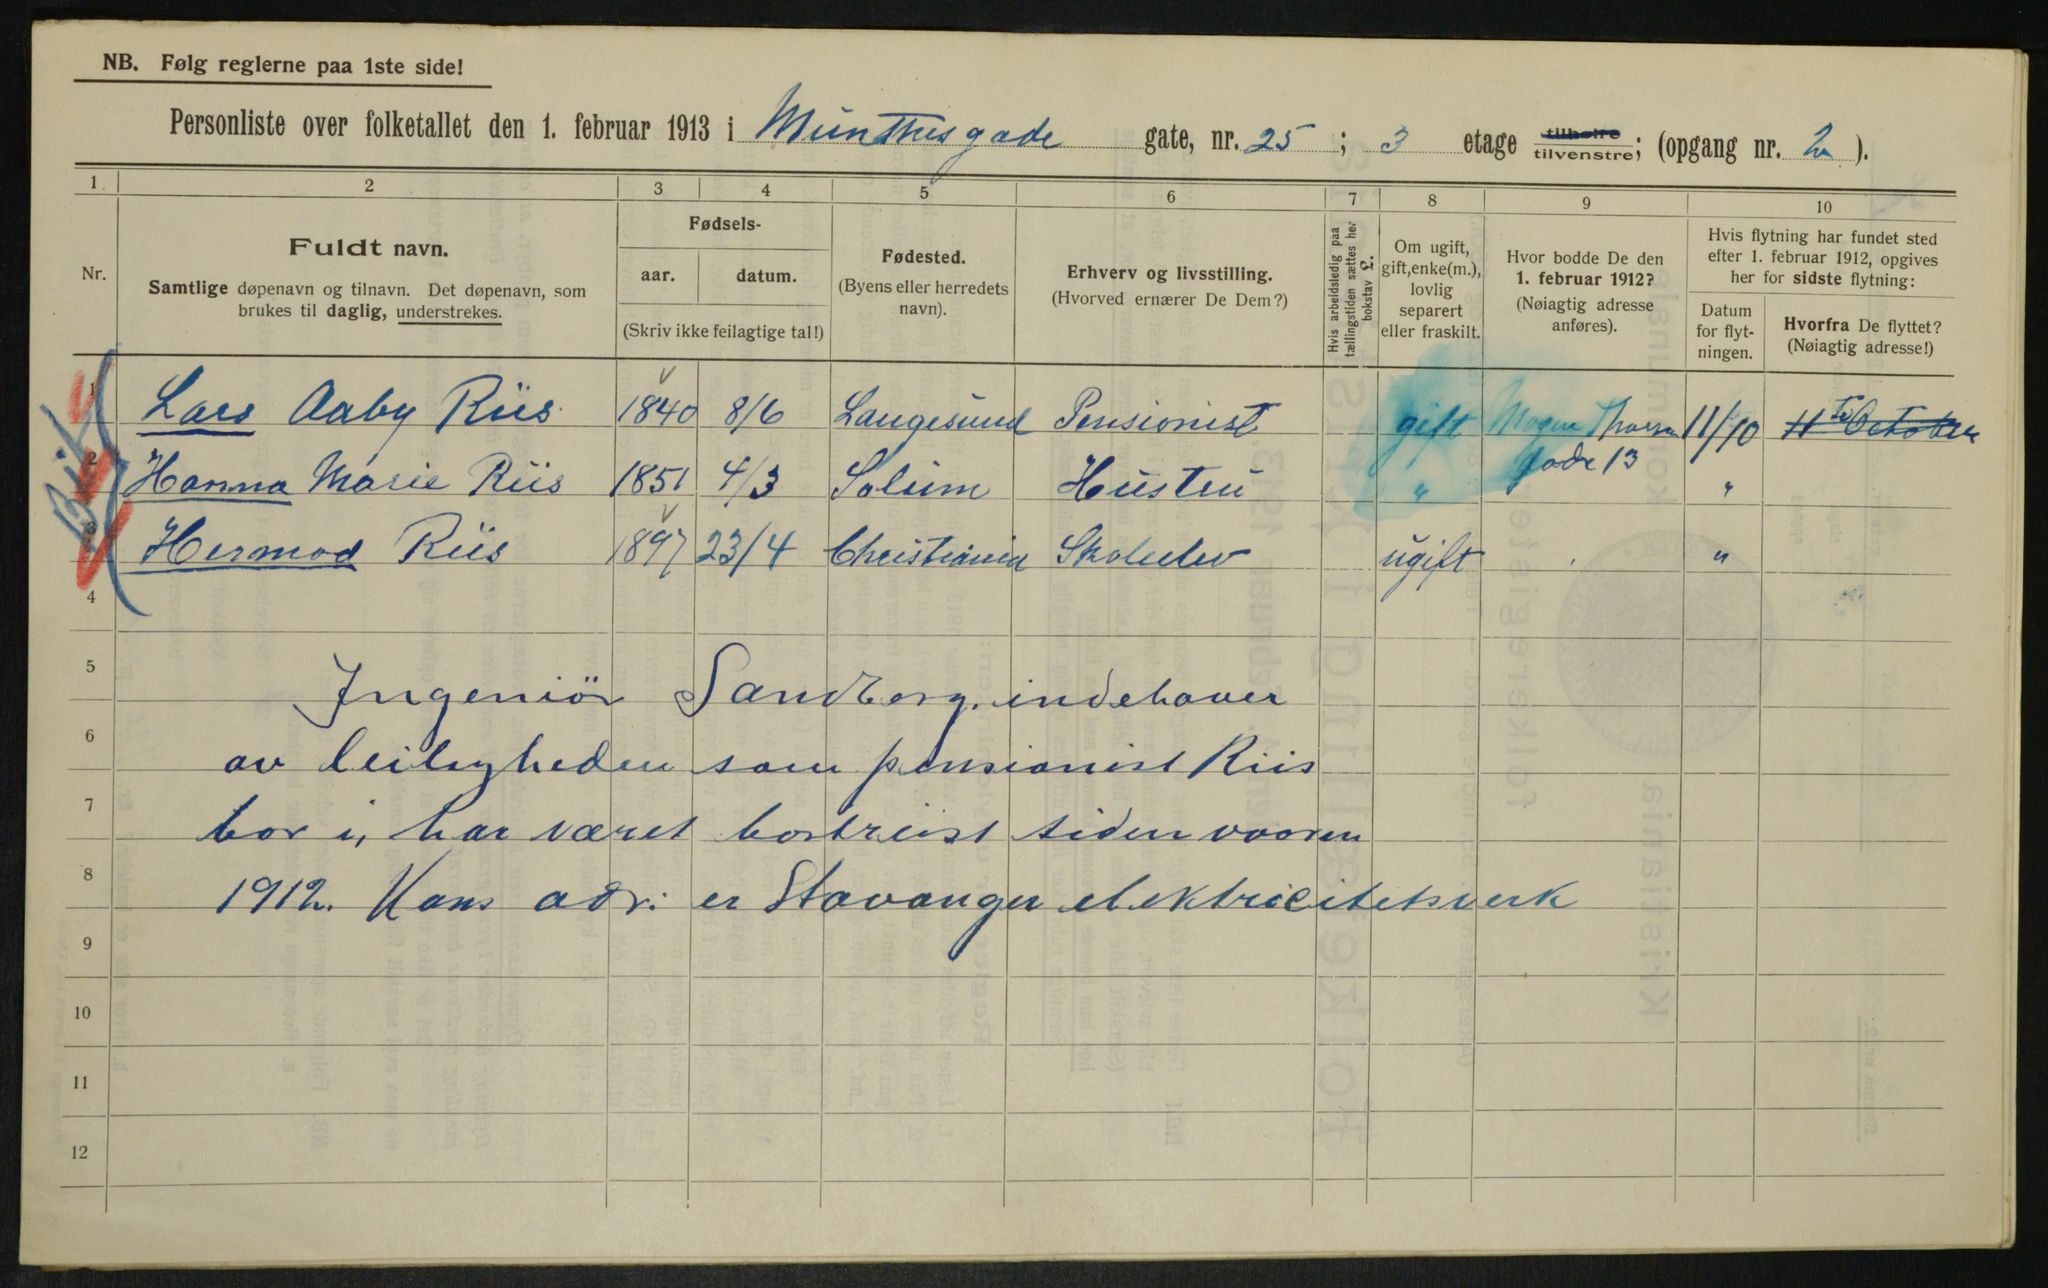 NB. Følg reglerne paa 1ste side!
Personliste over folketallet den 1. februar 1913 i Munthesgade gate, nr. 25 ; 3 etage tilhøire tilvenstre; (opgang nr. 2 ).
1 2 3 4 5 6 7 8 9 10
Nr.
Fuldt navn.
Samtlige døpenavn og tilnavn. Det døpenavn, som
brukes til daglig, understrekes.
Fødsels-
aar. datum.
(Skriv ikke feilagtige tal!)
Fødested.
(Byens eller herredets
navn).
Erhverv og livsstilling.
(Hvorved ernærer De Dem?)
Hvis arbeidsledig paa
tællingstiden sættes her
bokstav £.
Om ugift,
gift, enke(m.),
lovlig
separert
eller fraskilt.
Hvor bodde De den
1. februar 1912?
(Nøiagtig adresse
anføres).
Hvis flytning har fundet sted
efter 1. februar 1912, opgives
her for sidste flytning:
Datum
for flyt-
ningen.
Hvorfra De flyttet?
(Nøiagtig adresse!)
1 Lars Aaby Riis 1840 8/6 Langesund Pensionist gift Mogens Thorsens 11/10 11te October
gade 13
2 Hanna Marie Riis 1851 4/3 Solum Hustru " "
3 Hermod Riis 1897 23/4 Christiania Skoleelev ugift "
4
5 Ingeniør Sandberg, indehaver
6 av leiligheden som pensionist Riis
7 bor i, har været bortreist siden vaaren
8 1912. Hans adr. er Stavanger elektricitetsverk
9
10
11
12